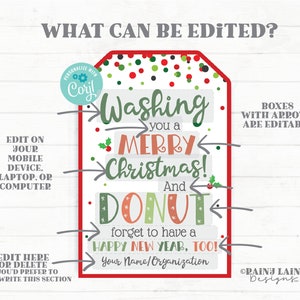 WHAT CAN BE EDITED?
PERSONALIZE WITH
Corjl
Washing
you a
MERRY
Christmas!
And
DONUT
forget to have a
HAPPY NEW YEAR, TOO!
Your Name/Organization
EDIT ON
YOUR
MOBILE
DEVICE,
LAPTOP, OR
COMPUTER
BOXES
WITH ARROW
ARE EDITABL
EDIT HERE
OR DELETE
OU'D PREFER TO
WRITE THIS SECTION
©RAINJ LAIN
Designs